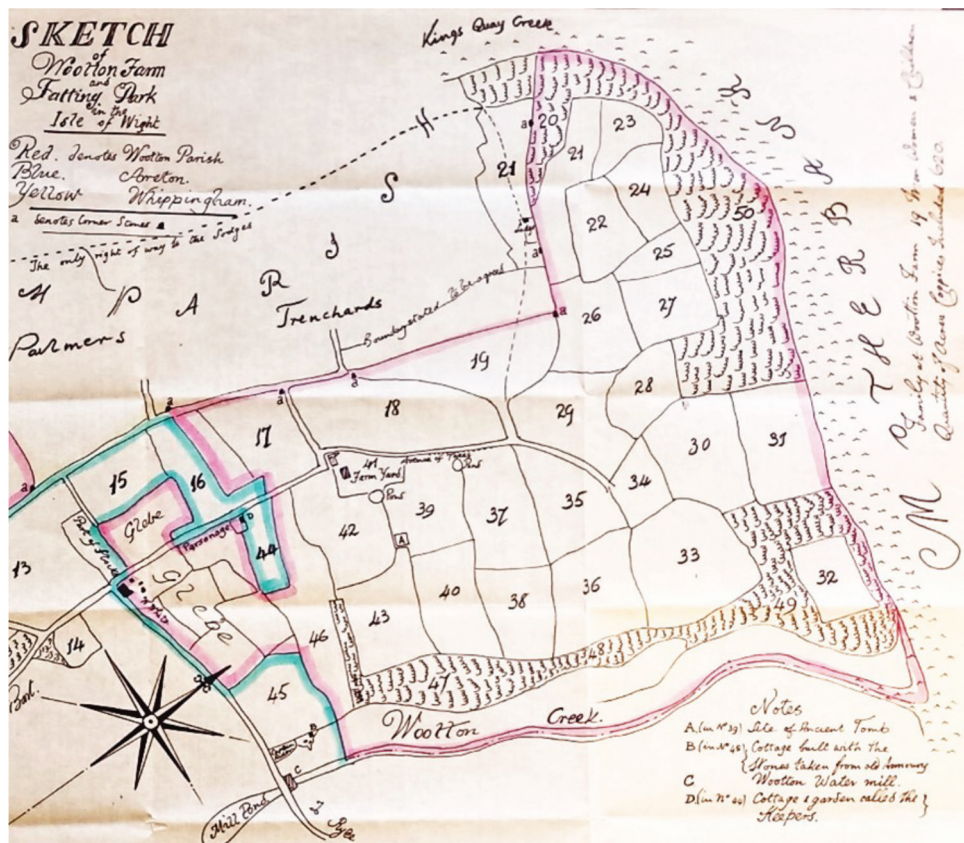 SKETCH
of
Wootton Farm
and
Fatting Park
in the
Isle of Wight
Red. denotes Wootton Parish
Blue. Areton.
Yellow Whippingham.
a denotes Corner Stones
The only right of way to the Lodges
Kings Quay Creek
H
S
I
R
A
P
M
Palmers
Trenchards
Boundary stated to be agreed
MOTHERBANK
Family at Wootton Farm 19 Men Women & Children
Quantity of Acres Coppice Included 620.
a
20
21
21
23
22
24
25
50
26
27
a
a
19
28
29
18
17
a
a
a
a
30
31
15
16
Glebe
Parsonage
D
44
41
Farm Yard
Avenue of Trees
Pond
Pond
42
39
A
37
35
34
33
32
13
14
Glebe
43
40
38
36
46
45
47
48
49
B
C
Wootton Creek.
Mill Pond
To Ryde
Notes
A (in No 39) Site of Ancient Tomb
B (in No 45) Cottage built with the
Stones taken from old Armoury
C Wootton Water mill.
D (in No 44) Cottage & garden called the
Keepers.